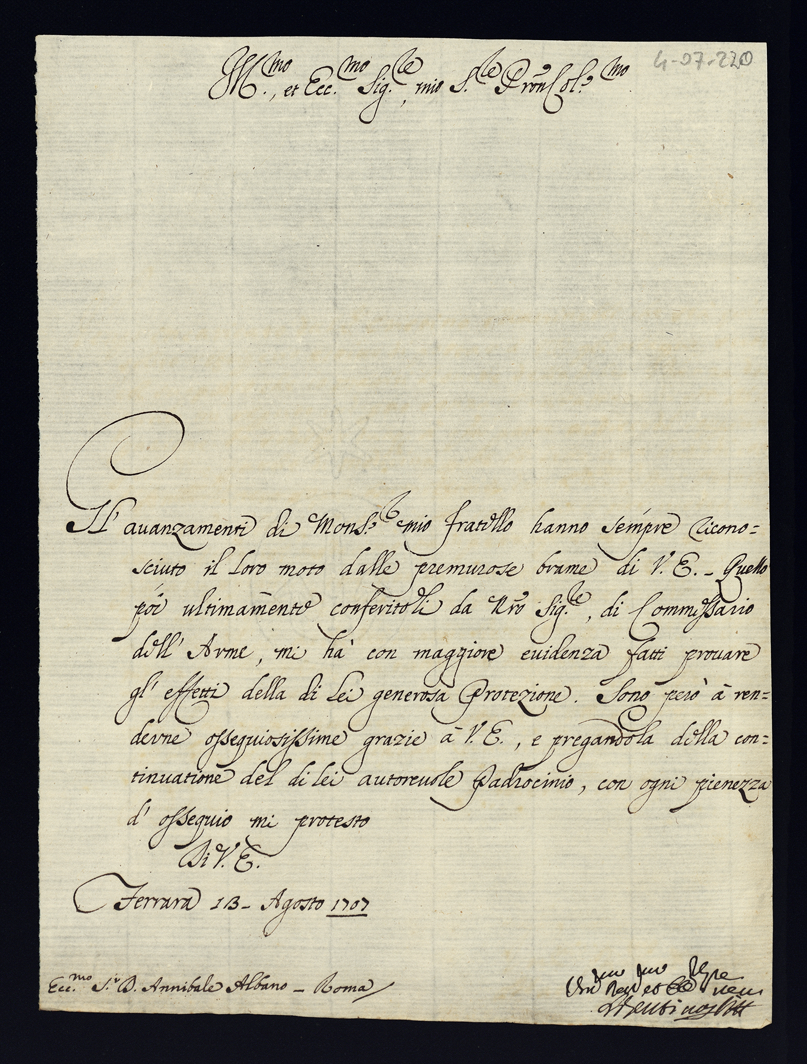 4-07-220
Ill.mo, et Ecc.mo Sig.re, mio S.re e Pron Col.mo
Gl' auanzamenti di Mons.r mio fratello hanno sempre ricono=
sciuto il loro moto dalle premurose brame di V. E. _ Quello
poi ultimamente conferitoli da Nro Sig.re, di Commissario
dell' Arme, mi hà con maggiore euidenza fatti prouare
gl' effetti della di lei generosa Protezione. Sono però à ren=
derne ossequiosissime grazie à V. E., e pregandola della con=
tinuatione del di lei autoreuole Padrocinio, con ogni pienezza
d' ossequio mi protesto
Di V. E.
Ferrara 13_ Agosto 1707
Ecc.mo S.r D. Annibale Albano _ Roma